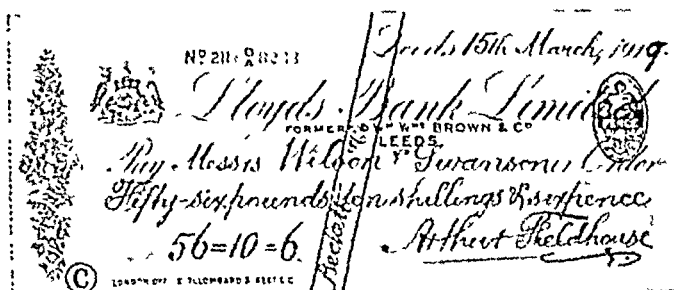 Leeds 15th March, 1919.
Lloyds Bank Limited
FORMERLY Wm Wms BROWN & Co
LEEDS.
Pay Messrs Wilson & Swanson or Order
Fifty-six pounds ten shillings & sixpence
56=10=6.
Arthur Fieldhouse
©
LOMBARD STREET E.C.